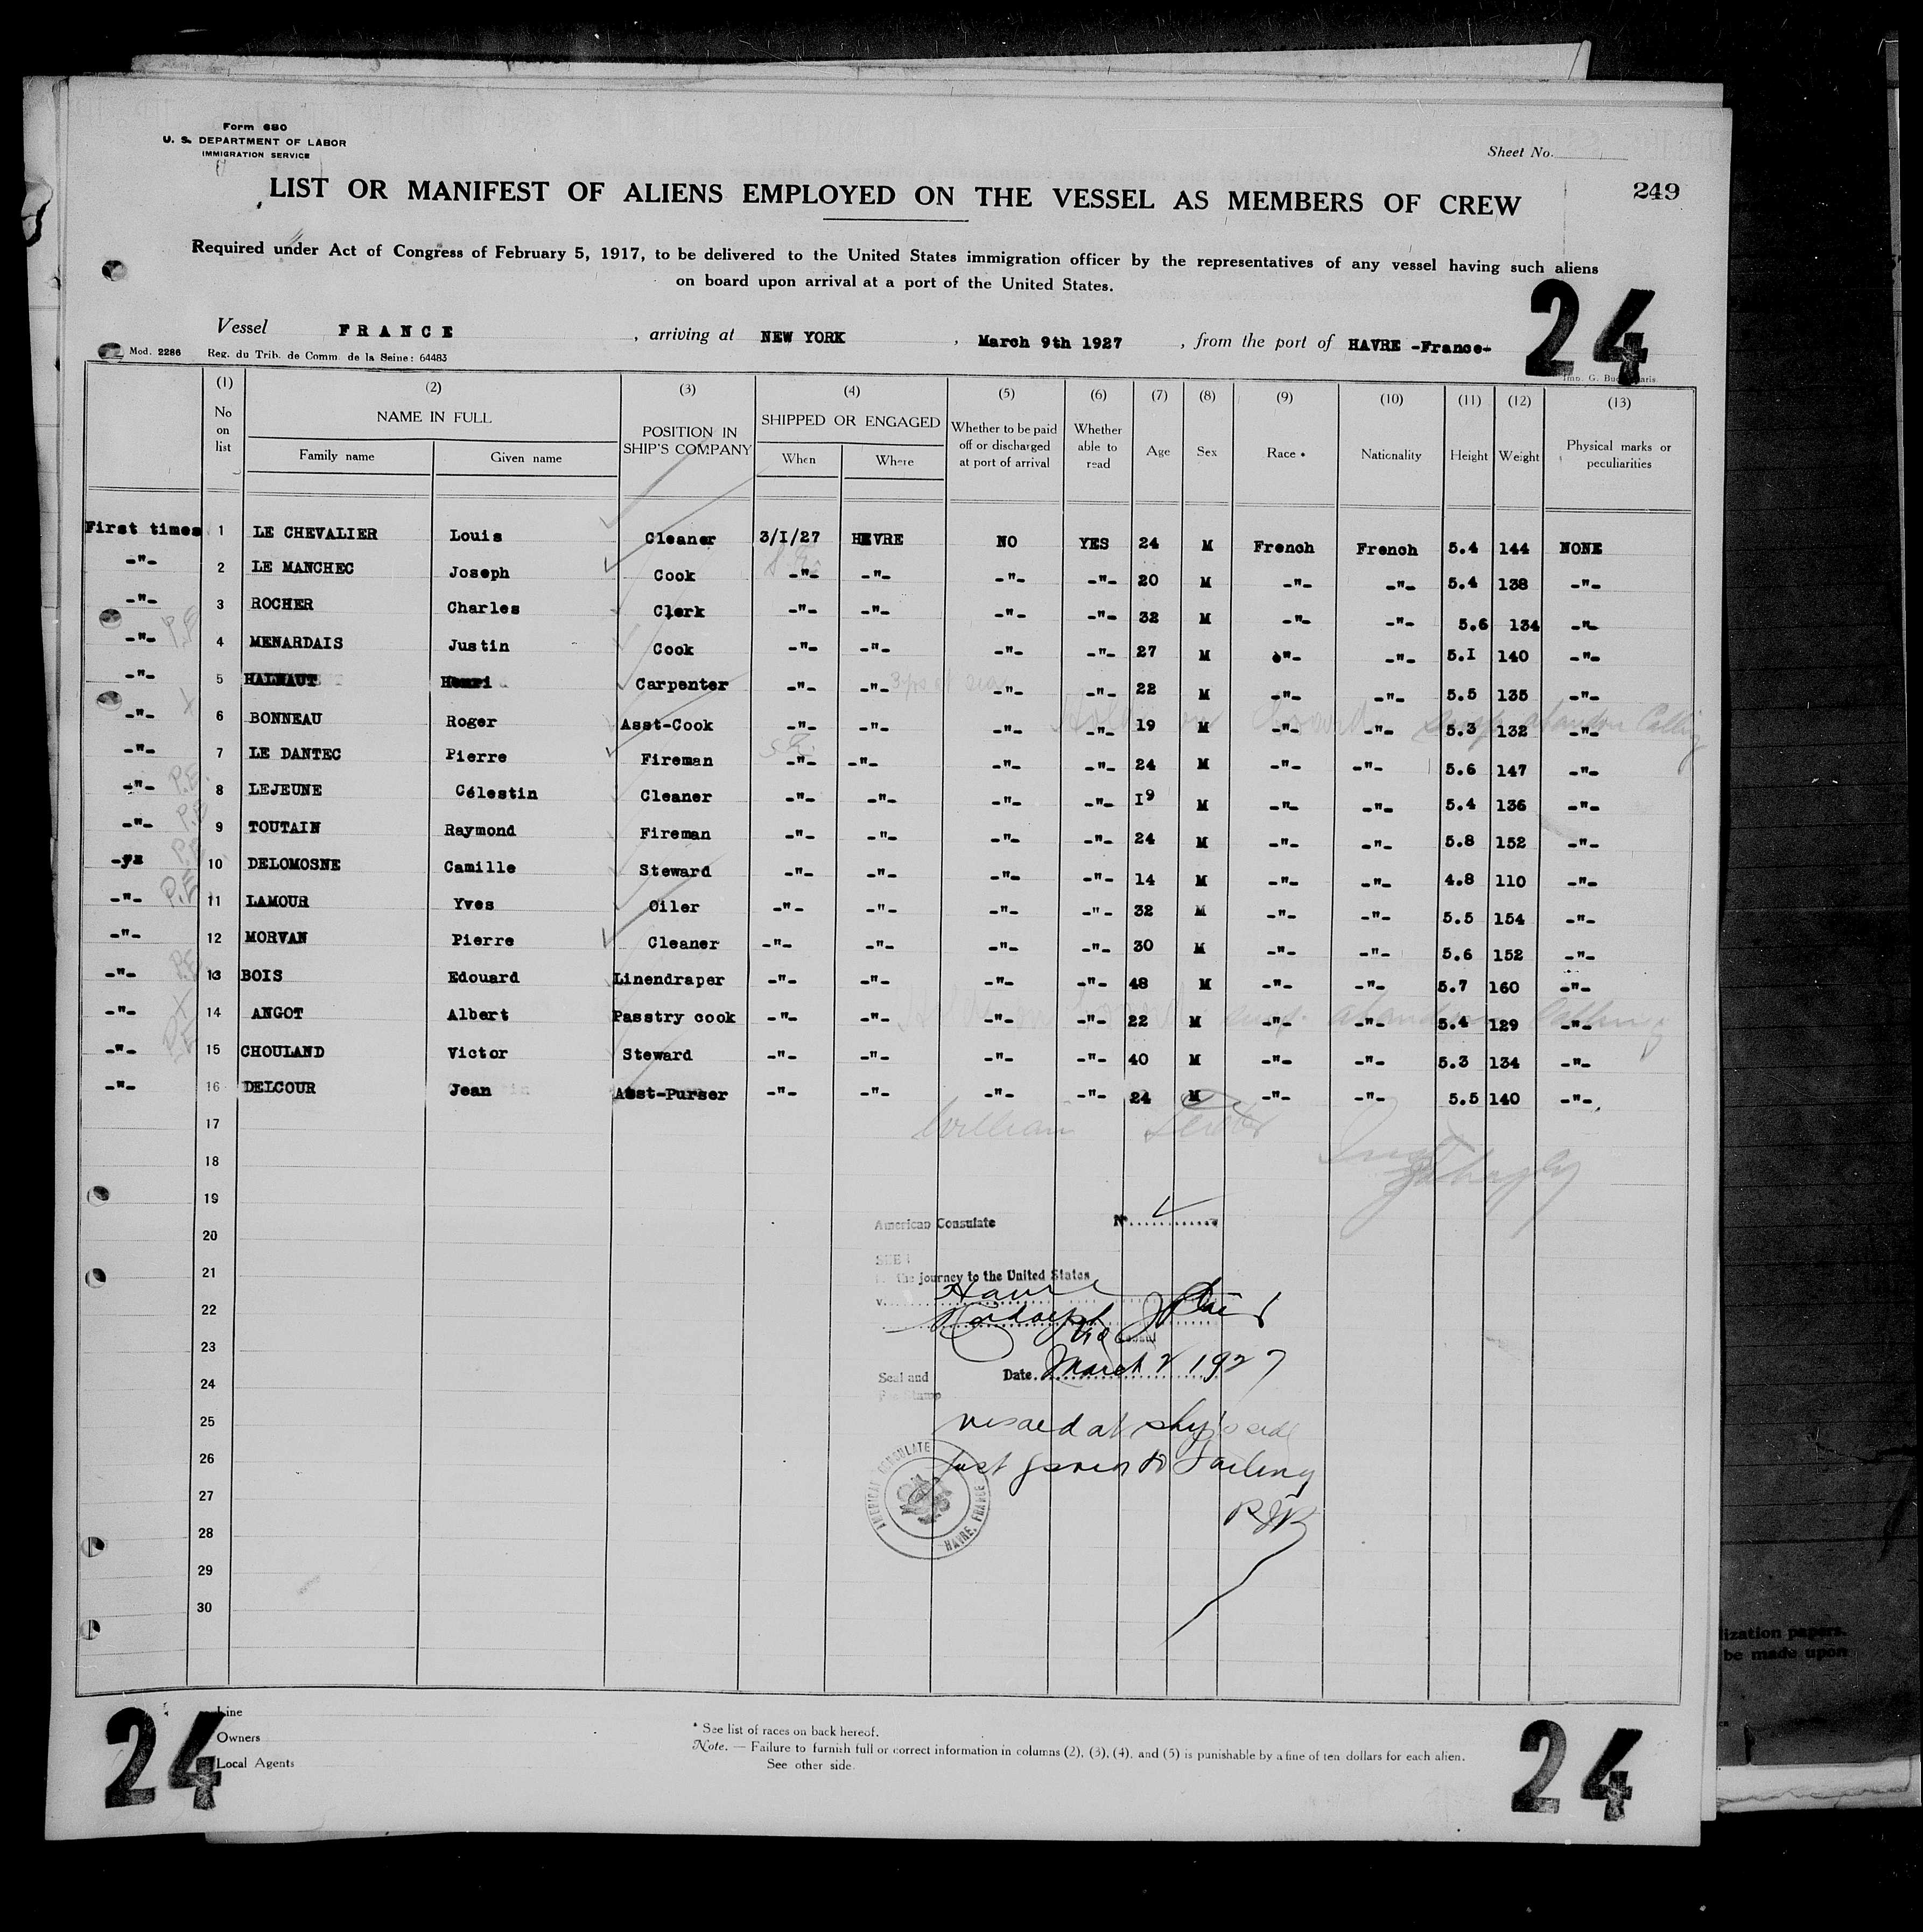 Form 680
U. S. DEPARTMENT OF LABOR
IMMIGRATION SERVICE
Sheet No.
LIST OR MANIFEST OF ALIENS EMPLOYED ON THE VESSEL AS MEMBERS OF CREW
249
Required under Act of Congress of February 5, 1917, to be delivered to the United States immigration officer by the representatives of any vessel having such aliens
on board upon arrival at a port of the United States.
24
Vessel FRANCE , arriving at NEW YORK , March 9th 1927 , from the port of HAVRE -France-
Mod. 2286 Reg. du Trib. de Comm. de la Seine: 64483
Imp. G.
(1) (2) (3) (4) (5) (6) (7) (8) (9) (10) (11) (12) (13)
No on list NAME IN FULL POSITION IN SHIP'S COMPANY SHIPPED OR ENGAGED Whether to be paid off or discharged at port of arrival Whether able to read Age Sex Race * Nationality Height Weight Physical marks or peculiarities
Family name Given name When Where
First times 1 LE CHEVALIER Louis Cleaner 3/I/27 HEVRE NO YES 24 M French French 5.4 144 NONE
-"- 2 LE MANCHEC Joseph Cook -"- -"- -"- -"- 20 M -"- -"- 5.4 138 -"-
-"- 3 ROCHER Charles Clerk -"- -"- -"- -"- 32 M -"- -"- 5.6 134 -"-
-"- P.E 4 MENARDAIS Justin Cook -"- -"- -"- -"- 27 M "- -"- 5.I 140 -"-
-"- 5 HALNAUT Henri Carpenter -"- -"- -"- -"- 22 M -"- -"- 5.5 135 -"-
-"- X 6 BONNEAU Roger Asst-Cook -"- -"- -"- -"- 19 M -"- -"- 5.3 132 -"-
Hold on board susp abandon Calling
-"- 7 LE DANTEC Pierre Fireman -"- -"- -"- -"- 24 M -"- -"- 5.6 147 -"-
-"- P.E. 8 LEJEUNE Célestin Cleaner -"- -"- -"- -"- I9 M -"- -"- 5.4 136 -"-
-"- P.E 9 TOUTAIN Raymond Fireman -"- -"- -"- -"- 24 M -"- -"- 5.8 152 -"-
P.E 10 DELOMOSNE Camille Steward -"- -"- -"- -"- 14 M -"- -"- 4.8 110 -"-
-"- P.E 11 LAMOUR Yves Oiler -"- -"- -"- -"- 32 M -"- -"- 5.5 154 -"-
-"- 12 MORVAN Pierre Cleaner -"- -"- -"- -"- 30 M -"- -"- 5.6 152 -"-
-"- P.E 13 BOIS Edouard Linendraper -"- -"- -"- -"- 48 M -"- -"- 5.7 160 -"-
-"- X 14 ANGOT Albert Passtry cook -"- -"- -"- -"- 22 M -"- -"- 5.4 129 -"-
Hold on board susp. abandon Calling
-"- P.E 15 CHOULAND Victor Steward -"- -"- -"- -"- 40 M -"- -"- 5.3 134 -"-
-"- 16 DELCOUR Jean Asst-Purser -"- -"- -"- -"- 24 M -"- -"- 5.5 140 -"-
17
William
18
19
American Consulate No
20
21
the journey to the United States
Havre
22
Consul
23
Date March 2 1927
24
Seal and
Fee Stamp
25
visaed at ship's side
26
just prior to Sailing
27
AMERICAN CONSULATE HAVRE, FRANCE
28
29
30
24
Line
Owners
Local Agents
* See list of races on back hereof.
Note. — Failure to furnish full or correct information in columns (2), (3), (4), and (5) is punishable by a fine of ten dollars for each alien.
See other side.
24
lization papers.
be made upon